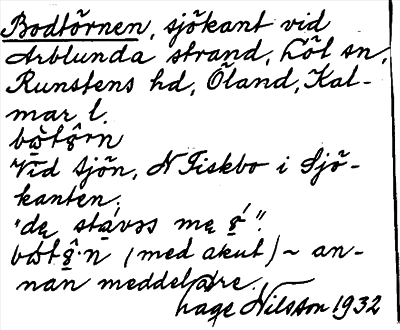 Bodtörnen, sjökant vid
Arblunda strand, Löt sn,
Runstens hd, Öland, Kal-
mar l.
Vid sjön, N Fiskbo i Sjö-
kanten;
(med akut) ~ an-
nan meddelare.
Lage Nilsson 1932